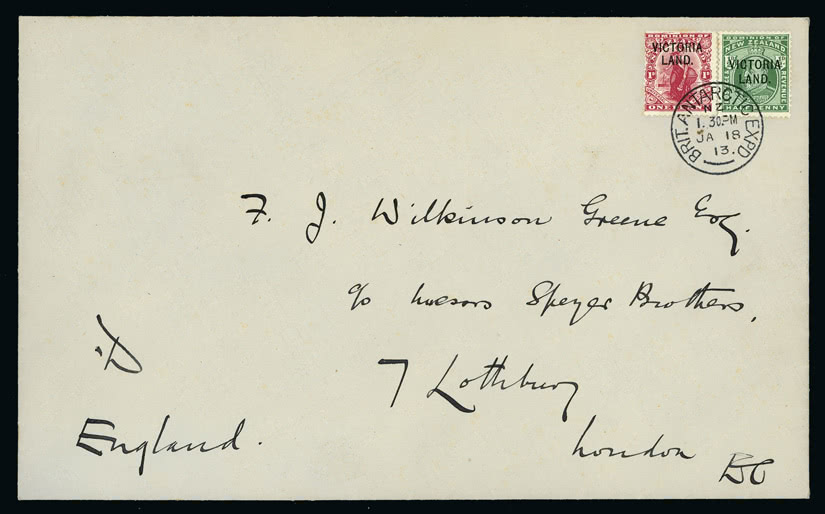 DOMINION OF
VICTORIA
LAND.
1D 1D
ONE
DOMINION OF
NEW ZEALAND
VICTORIA
LAND.
REVENUE
HALF PENNY
BRIT. ANTARCTIC EXPD.
NZ
1.30.PM
JA 18
13.
F. J. Wilkinson Greene Esq.
c/o Messrs Speyer Brothers,
7 Lothbury
London EC
England.